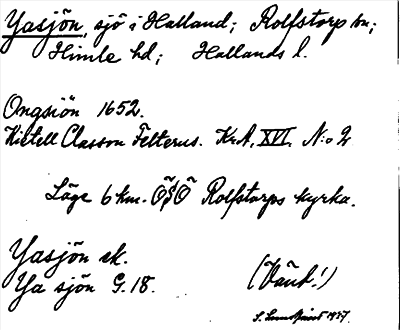 Yasjön, sjö i Halland; Rolfstorp sn;
Himle hd; Hallands l.
Ongsiön 1652.
Kietell Classon Felterus. KrA, XVI, N:o 2
Läge 6 km. ÖSÖ Rolfstorps kyrka.
Yasjön ek.
Ya sjön G. 18.
(Vänt.!)
S. 1937